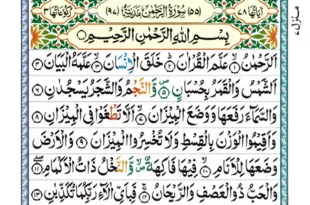 اٰيَاتُهَا ٧٨ (٥٥) سُوْرَةُ الرَّحْمٰنِ مَدَنِيَّةٌ (٩٧) رُكُوْعَاتُهَا ٣
بِسْمِ اللّٰهِ الرَّحْمٰنِ الرَّحِيْمِ
اَلرَّحْمٰنُ ۙ۝١ عَلَّمَ الْقُرْاٰنَ ؕ۝٢ خَلَقَ الْاِنْسَانَ ۙ۝٣ عَلَّمَهُ الْبَيَانَ ۝٤
اَلشَّمْسُ وَالْقَمَرُ بِحُسْبَانٍ ۪۝٥ وَّالنَّجْمُ وَالشَّجَرُ يَسْجُدٰنِ ۝٦
وَالسَّمَآءَ رَفَعَهَا وَوَضَعَ الْمِيْزَانَ ۙ۝٧ اَلَّا تَطْغَوْا فِى الْمِيْزَانِ ۝٨
وَاَقِيْمُوا الْوَزْنَ بِالْقِسْطِ وَلَا تُخْسِرُوا الْمِيْزَانَ ۝٩ وَالْاَرْضَ
وَضَعَهَا لِلْاَنَامِ ۙ۝١٠ فِيْهَا فَاكِهَةٌ ۪ۙ وَّالنَّخْلُ ذَاتُ الْاَكْمَامِ ۖ۝١١
وَالْحَبُّ ذُو الْعَصْفِ وَالرَّيْحَانُ ۚ۝١٢ فَبِاَىِّ اٰلَآءِ رَبِّكُمَا تُكَذِّبٰنِ ۝١٣